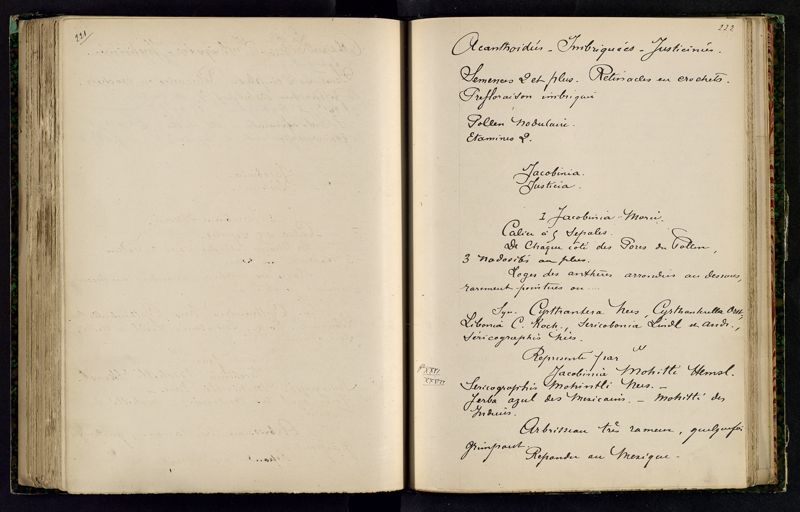 221
222
Acanthoidées - Imbriquées - Justiciées.
Semences 2 et plus. Retinacles en crochets.
Prefloraison imbriquée
Pollen nodulaire.
Etamines 2.
Jacobinia.
Justicia.
1 Jacobinia Moric.
Calice à 5 Sepales.
De Chaque côté des Pores du Pollen,
3 nodosités au plus.
Loges des anthères arrondies au dessous,
rarement pointues ou ....
Syn. Cyrthantera Nees, Cyrthantrella
Libonia C. Koch., Sericobonia Lindl et André.,
Séricographis Nees.
Represente par
Jacobinia Mohitli Hemsl.
P. XXVI
XXVII
Sericographis Mohintli Nees. -
Jerba azul des Mexicains. - Mohitli des
Indiens.
Arbrisseau très rameux, quelquefois
grimpant.
Repandu au Mexique.